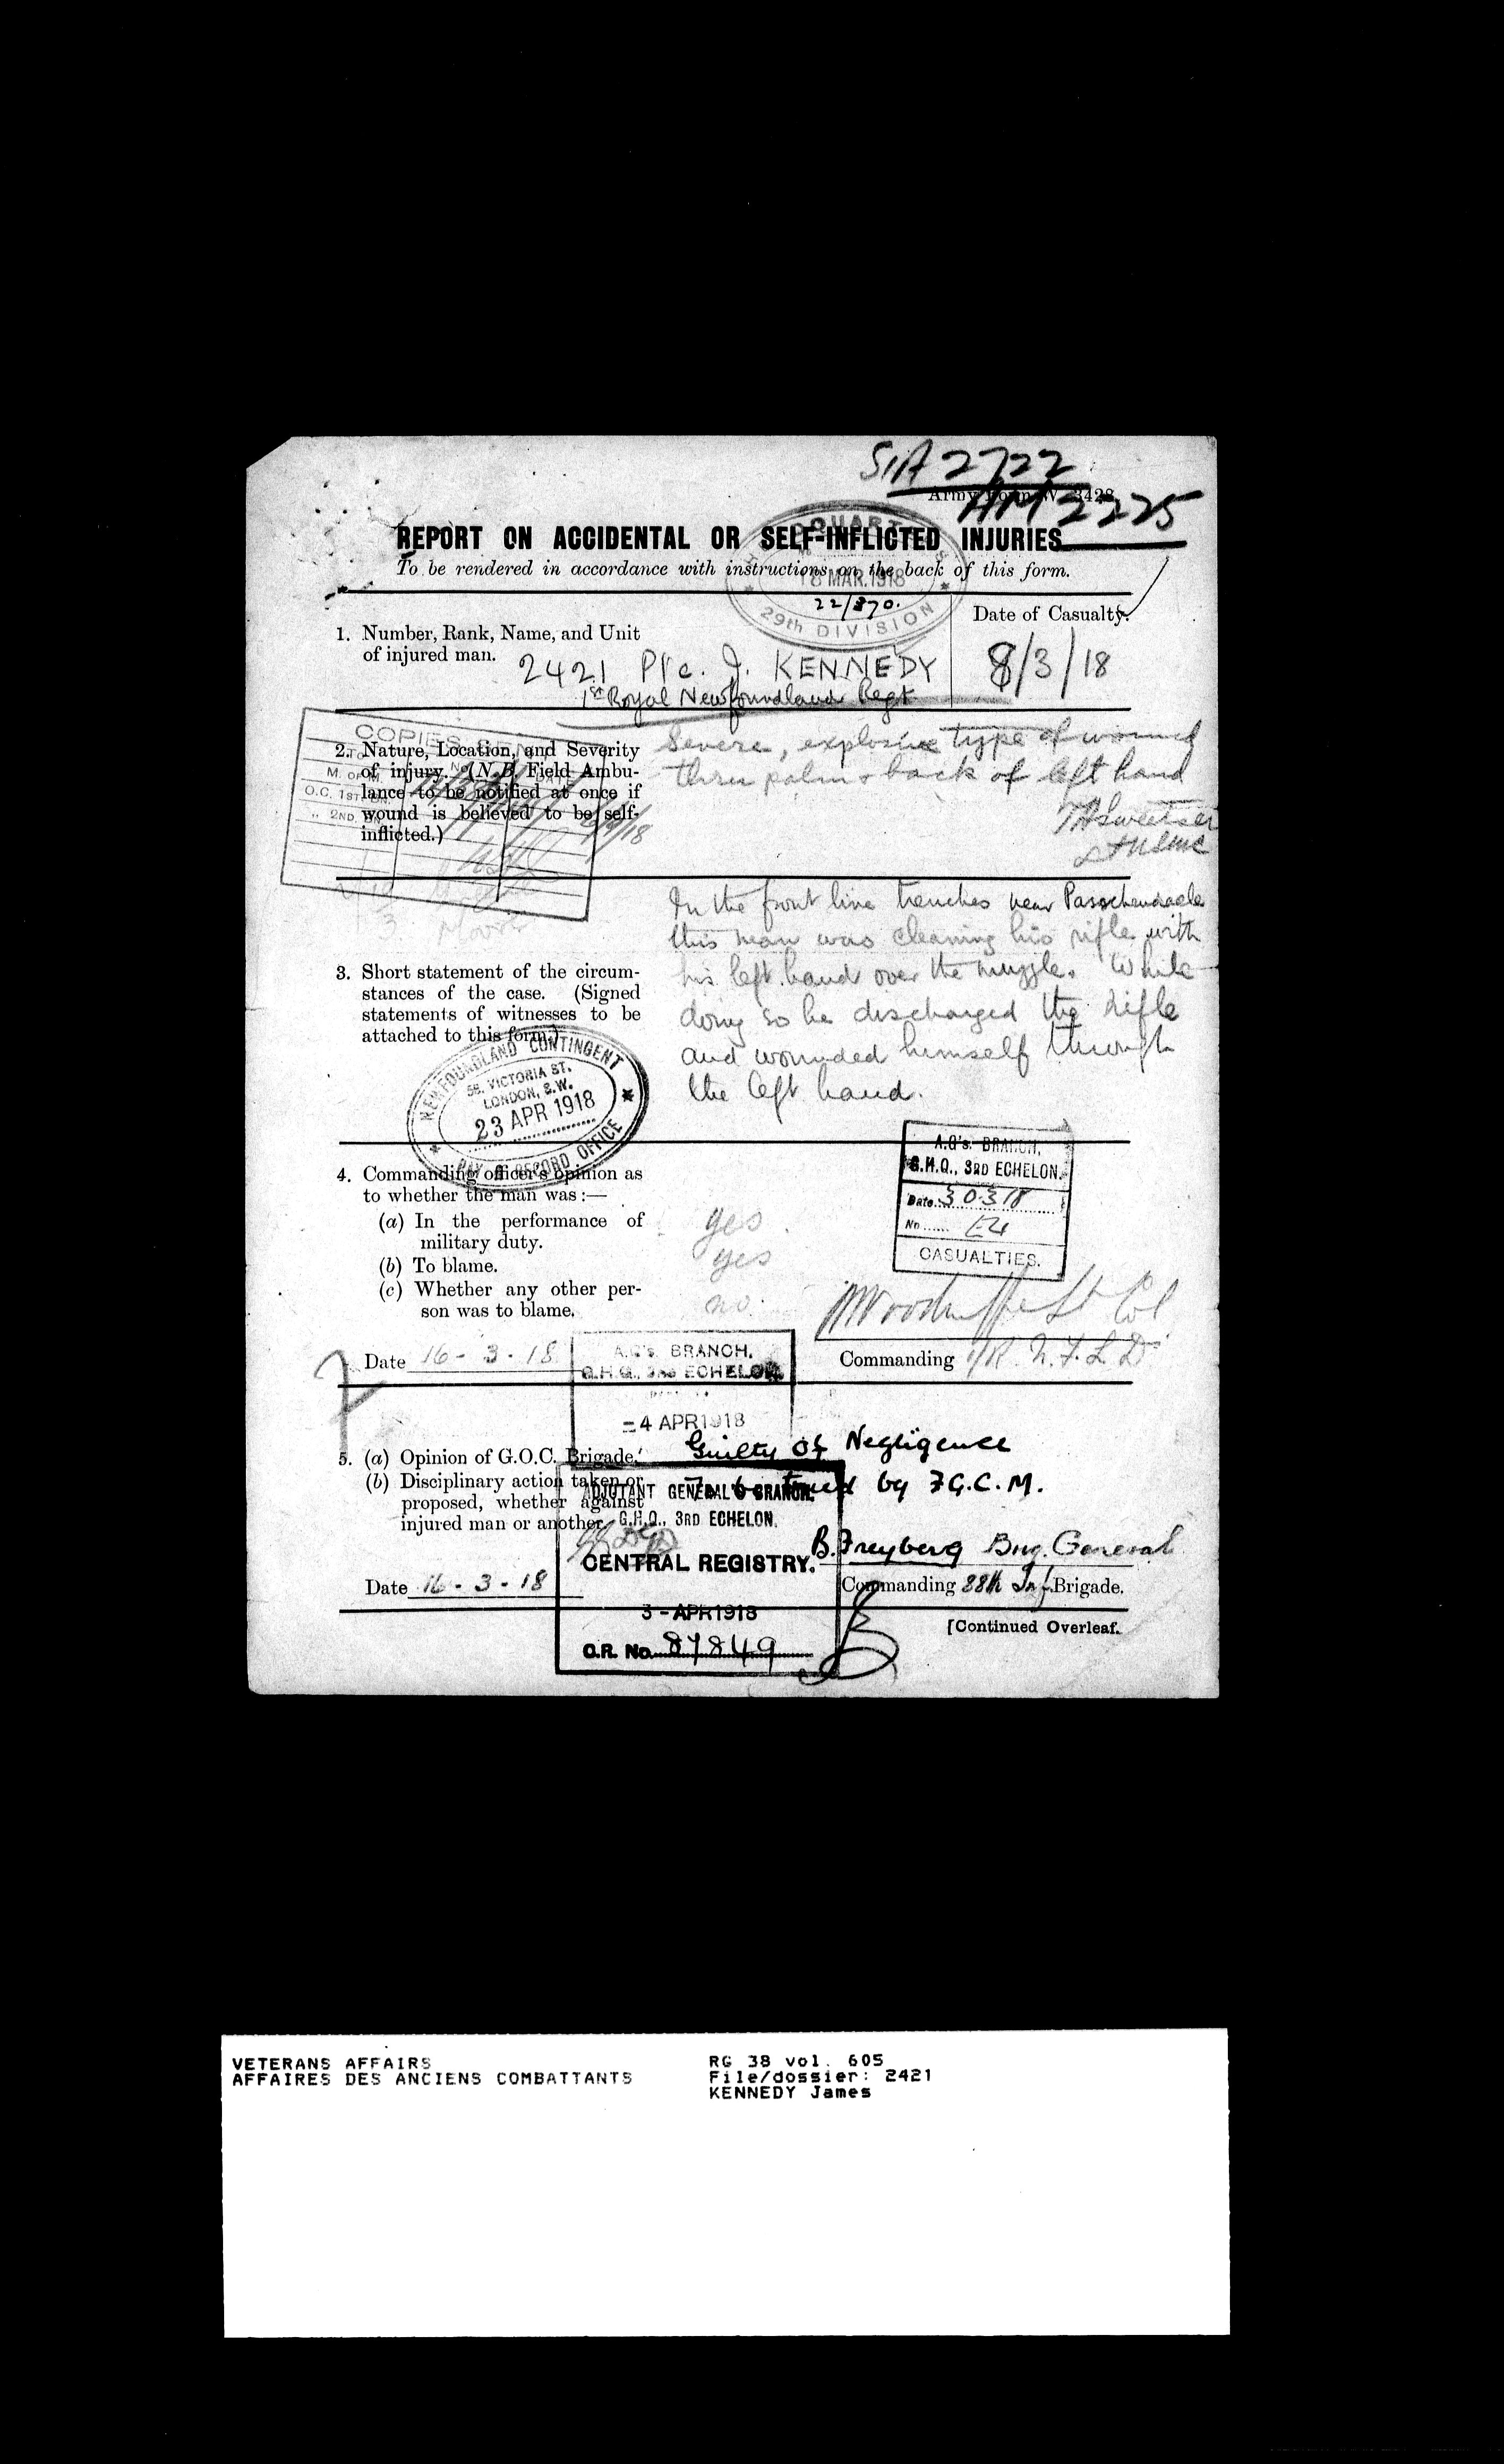 S.I.A 2722
Army Form W. 3428
AM 2225
REPORT ON ACCIDENTAL OR SELF-INFLICTED INJURIES
To be rendered in accordance with instructions on the back of this form.
HEADQUARTERS
18 MAR. 1918
22/870.
29th DIVISION
Date of Casualty.
8/3/18
1. Number, Rank, Name, and Unit
of injured man.
2421 Pte. J. KENNEDY
1st Royal Newfoundland Regt
COPIES SENT
TO
No.
DATE
M. OF M.
O.C. 1ST. BN.
,, 2ND. BN.
2. Nature, Location, and Severity
of injury. (N.B. Field Ambu-
lance to be notified at once if
wound is believed to be self-
inflicted.)
Severe, explosive type of wound
thru palm & back of left hand
TA Sweetser
3. Short statement of the circum-
stances of the case. (Signed
statements of witnesses to be
attached to this form.)
In the front line trenches near Passchendaele
this man was cleaning his rifle with
his left hand over the muzzle. While
doing so he discharged the rifle
and wounded himself through
the left hand.
NEWFOUNDLAND CONTINGENT
58, VICTORIA ST.
LONDON, S.W.
23 APR 1918
PAY & RECORD OFFICE
A.G's. BRANCH,
G.H.Q., 3RD ECHELON.
Date. 30.3.18
No
CASUALTIES.
4. Commanding officer's opinion as
to whether the man was :—
(a) In the performance of
military duty.
yes
(b) To blame.
yes
(c) Whether any other per-
son was to blame.
no.
Lt Col
Date 16-3-18
Commanding 1/R.N.F.L.D.
A.G's. BRANCH.
G.H.Q., 3RD ECHELON
-4 APR 1918
5. (a) Opinion of G.O.C. Brigade.
Guilty of Negligence
(b) Disciplinary action taken or
proposed, whether against
injured man or another.
To be tried by F.G.C.M.
ADJUTANT GENERAL'S BRANCH.
G.H.Q., 3RD ECHELON.
CENTRAL REGISTRY.
3-APR1918
C.R. No. 87849
B. Freyberg Brig. General
Date 16-3-18
Commanding 88th Inf. Brigade.
[Continued Overleaf.
VETERANS AFFAIRS
AFFAIRES DES ANCIENS COMBATTANTS
RG 38 vol. 605
File/dossier: 2421
KENNEDY James